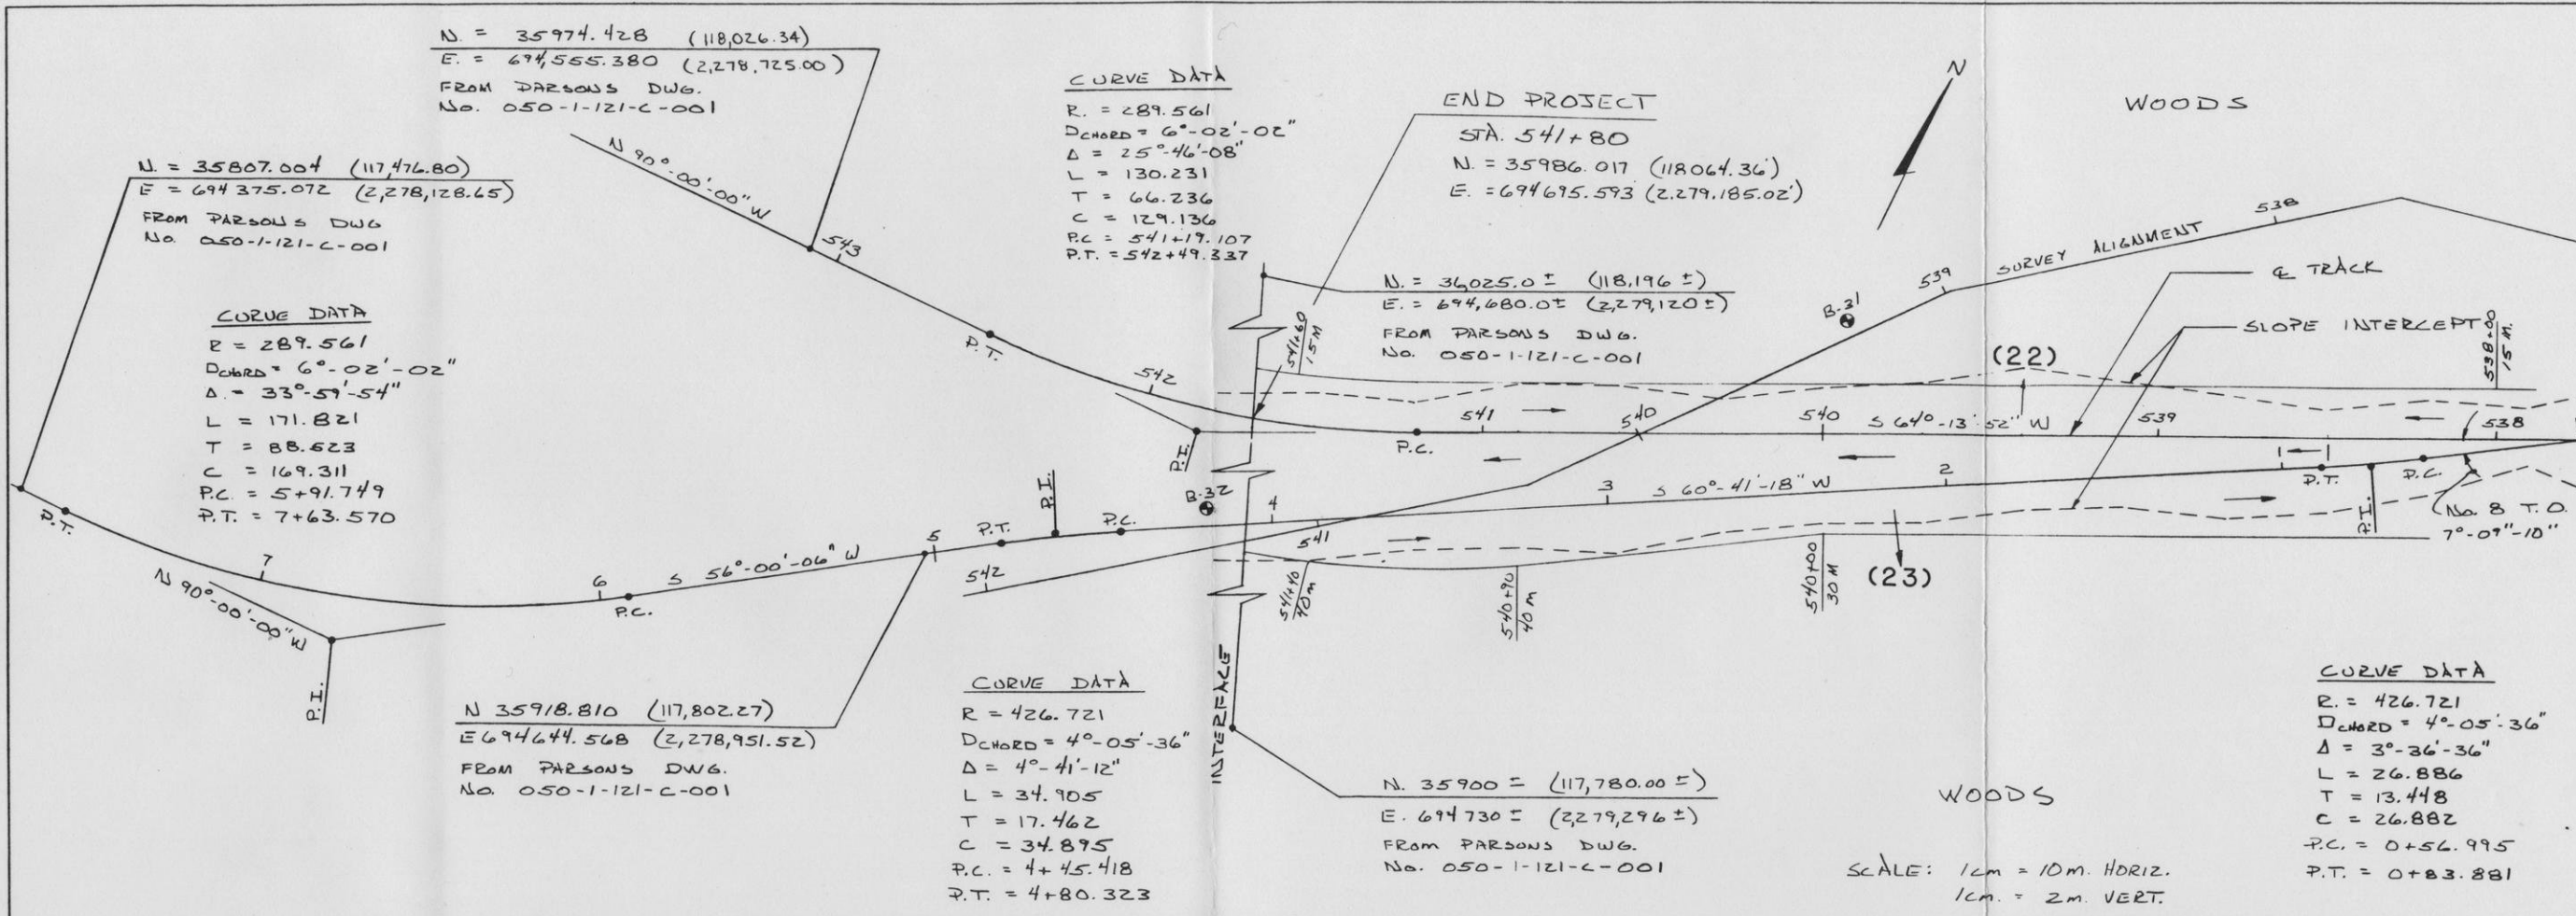 N. = 35974.428 (118,026.34)
E. = 694,555.380 (2,278,725.00)
FROM PARSONS DWG.
No. 050-1-121-C-001
N. = 35807.004 (117,476.80)
E = 694 375.072 (2,278,128.65)
FROM PARSONS DWG
No. 050-1-121-C-001
CURVE DATA
R = 289.561
DCHORD = 6°-02'-02"
Δ. = 33°-59'-54"
L = 171.821
T = 88.523
C = 169.311
P.C. = 5+91.749
P.T. = 7+63.570
CURVE DATA
R. = 289.561
DCHORD = 6°-02'-02"
Δ = 25°-46'-08"
L = 130.231
T = 66.236
C = 129.136
P.C = 541+19.107
P.T. = 542+49.337
END PROJECT
STA. 541+80
N. = 35986.017 (118064.36')
E. = 694695.593 (2.279,185.02')
N. = 36,025.0 ± (118,196 ±)
E. = 694,680.0± (2,279,120±)
FROM PARSONS DWG.
No. 050-1-121-C-001
N
WOODS
N 90°-00'-00" W
543
P.T.
542
P.I.
541+60
15 M
P.C.
541
540
540
S 64°-13'-52" W
539
538
539
SURVEY ALIGNMENT
538
℄ TRACK
SLOPE INTERCEPT
B-31
(22)
538+00
15 M.
P.T.
7
N 90°-00'-00" W
P.I.
6
P.C.
S 56°-00'-06" W
5
P.T.
P.I.
P.C.
B-32
4
3
S 60°-41'-18" W
2
1
P.T.
P.I.
P.C.
No. 8 T.O.
7°-09"-10"
542
541
541+40
40 m
540+90
40 m
540+00
30 M
(23)
INTERFACE
N 35918.810 (117,802.27)
E 694644.568 (2,278,951.52)
FROM PARSONS DWG.
No. 050-1-121-C-001
CURVE DATA
R = 426.721
DCHORD = 4°-05'-36"
Δ = 4°-41'-12"
L = 34.905
T = 17.462
C = 34.895
P.C. = 4+45.418
P.T. = 4+80.323
N. 35900 ± (117,780.00 ±)
E. 694730 ± (2,279,296 ±)
FROM PARSONS DWG.
No. 050-1-121-C-001
WOODS
SCALE: 1cm = 10m. HORIZ.
1cm. = 2m. VERT.
CURVE DATA
R. = 426.721
DCHORD = 4°-05'-36"
Δ = 3°-36'-36"
L = 26.886
T = 13.448
C = 26.882
P.C. = 0+56.995
P.T. = 0+83.881